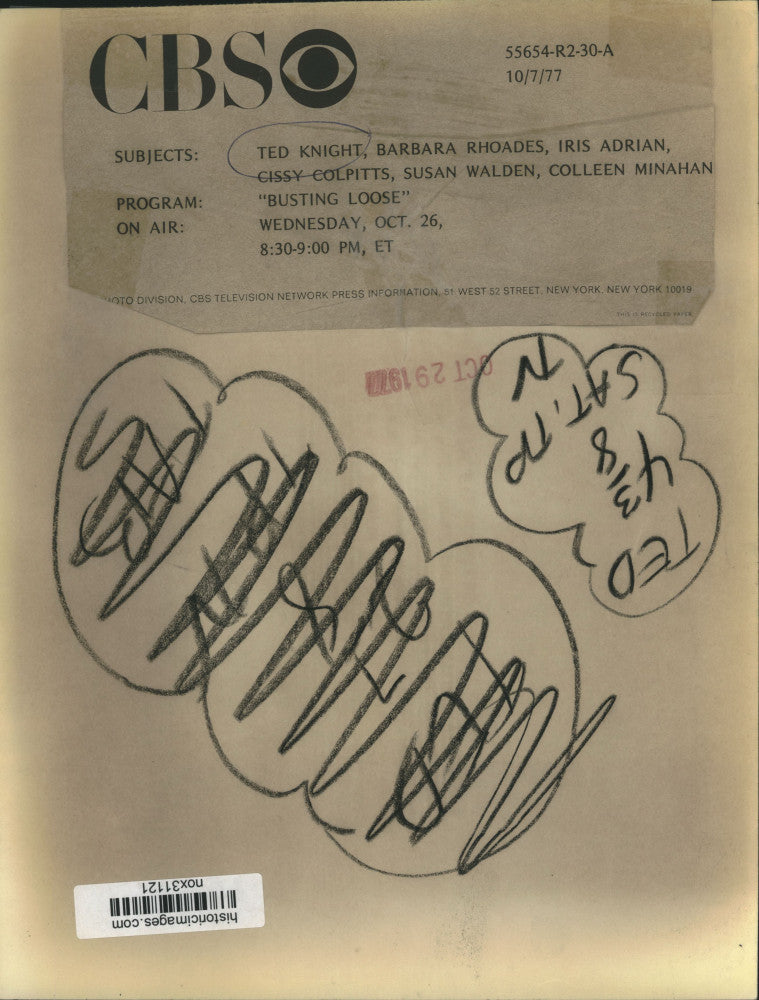 CBS
55654-R2-30-A
10/7/77
SUBJECTS: TED KNIGHT, BARBARA RHOADES, IRIS ADRIAN,
CISSY COLPITTS, SUSAN WALDEN, COLLEEN MINAHAN
PROGRAM: "BUSTING LOOSE"
ON AIR: WEDNESDAY, OCT. 26,
8:30-9:00 PM, ET
OTO DIVISION, CBS TELEVISION NETWORK PRESS INFORMATION, 51 WEST 52 STREET, NEW YORK, NEW YORK 10019
THIS IS RECYCLED PAPER
OCT 29 197
TED
4 3/8
SAT. TP
TV
historicimages.com
nox31121